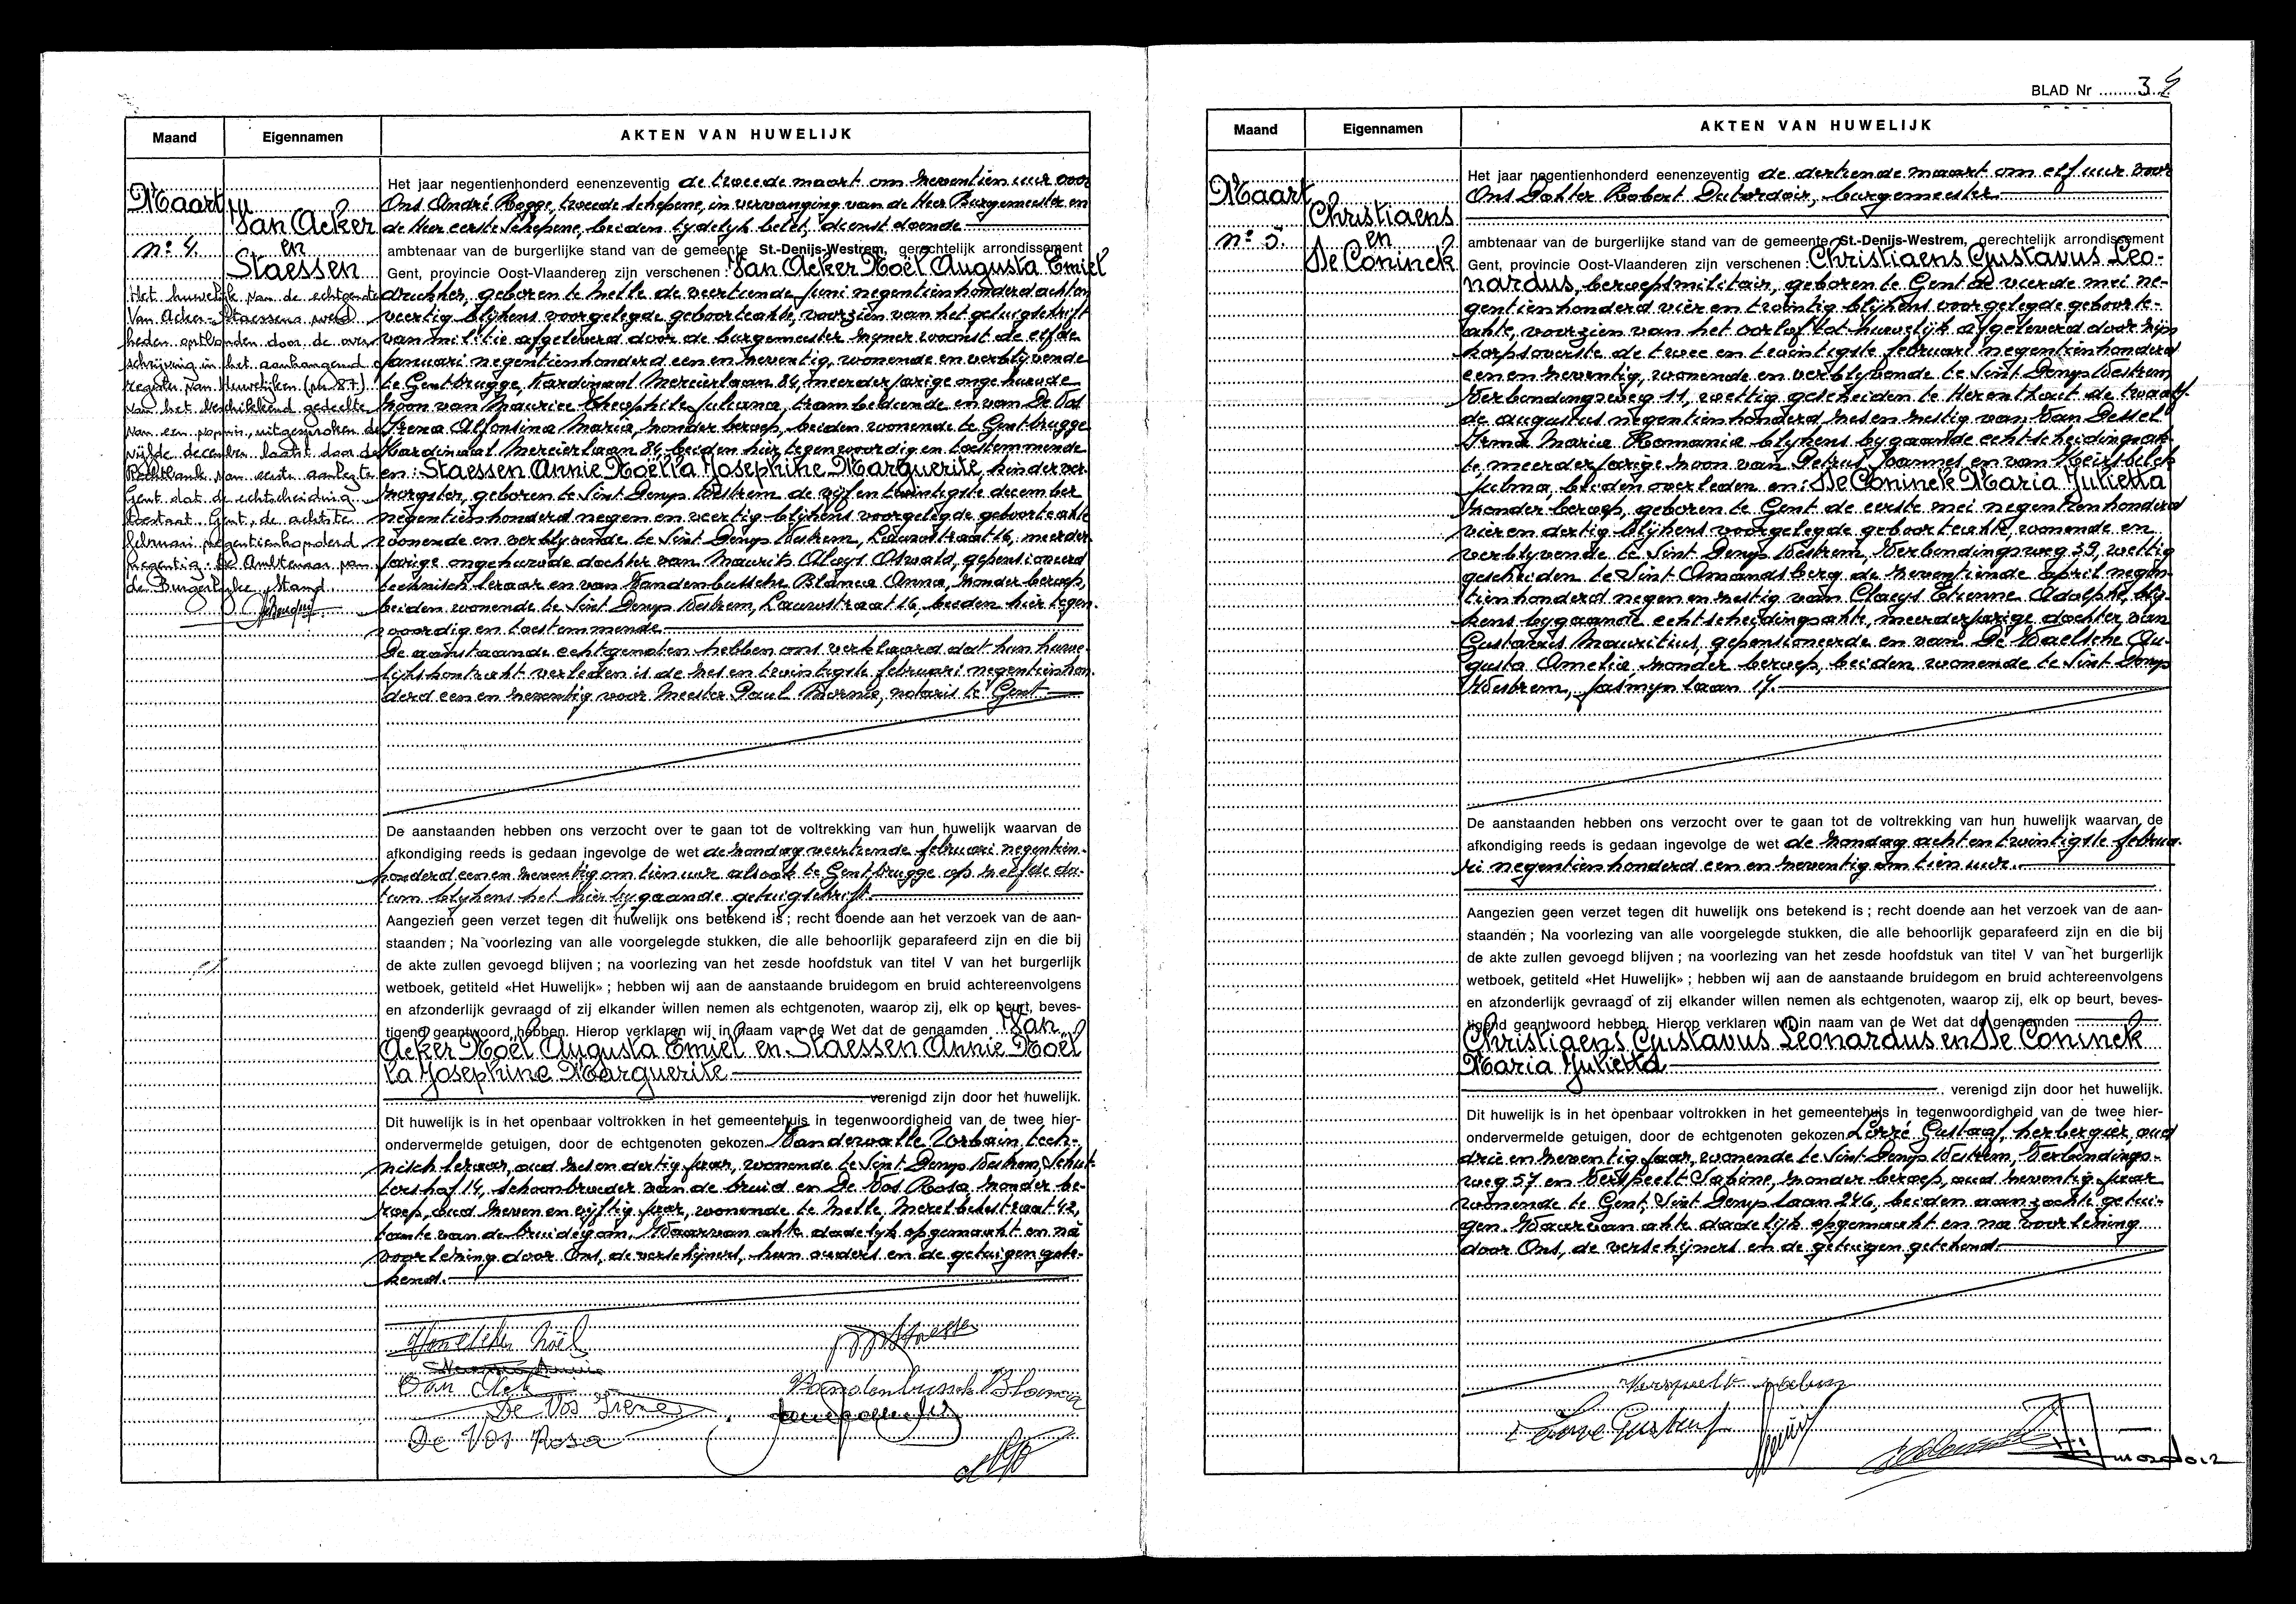 Maand
Eigennamen
AKTEN VAN HUWELIJK
Maart
nº 4.
Van Acker
en
Staessen
Het huwelijk van de echtgenoten
Van Acker-Staessens werd
heden ontbonden door de over-
schrijving in het aanhangend
register van Huwelijken (nr 87)
van het beschikkend gedeelte
van een vonnis, uitgesproken de
vijfde december laatst door de
Rechtbank van eerste aanleg te
Gent dat de echtscheiding
toestaat. Gent, de achtste
februari negentienhonderd
negentig. De Ambtenaar van
de Burgerlijke Stand.
Het jaar negentienhonderd eenenzeventig de tweede maart om zeventien uur voor
Ons André Rogge, tweede schepene, in vervanging van de Heer Burgemeester en
de Heer eerste Schepene, beiden tydelyk belet, dienst doende
ambtenaar van de burgerlijke stand van de gemeente St.-Denijs-Westrem, gerechtelijk arrondissement
Gent, provincie Oost-Vlaanderen zijn verschenen : Van Acker Noël Augusta Emiel
drukker, geboren te Melle de veertiende juni negentienhonderd achten
veertig blijkens voorgelegde geboorteakte, voorzien van het getuigschrift
van militie afgeleverd door de burgemeester zijner woonst de elfde
januari negentienhonderd een en zeventig, wonende en verblyvende
te Gentbrugge, Kardinaal Mercierlaan 84, meerderjarige ongehuwde
zoon van Maurice Theophile Juliana, trambediende en van De Vos
Irena Alfonsina Maria, zonder beroep, beiden wonende te Gentbrugge
Kardinaal Mercierlaan 84, beiden hier tegenwoordig en toestemmende
en : Staessen Annie Noëlla Josephine Marguerite, kinderver-
zorgster, geboren te Sint Denys Westrem de vijfentwintigste december
negentienhonderd negen en veertig blijkens voorgelegde geboorteakte
wonende en verblyvende te Sint Denys Westrem, Lauwstraat 16, meerder-
jarige ongehuwde dochter van Maurits Aloys Oswald, gepensioneerd
technisch leraar en van Vandenbussche Blanca Anna, zonder beroep,
beiden wonende te Sint Denys Westrem, Lauwstraat 16, beiden hier tegen-
woordig en toestemmende
De aanstaande echtgenoten hebben ons verklaard dat hun huwe-
lijkskontrakt verleden is de zes en twintigste februari negentienhon-
derd een en zeventig voor Meester Paul Mornie, notaris te Gent
De aanstaanden hebben ons verzocht over te gaan tot de voltrekking van hun huwelijk waarvan de
afkondiging reeds is gedaan ingevolge de wet de zondag veertiende februari negentien-
honderd een en zeventig om tien uur alsook te Gentbrugge op zelfde da-
tum blijkens het hier bygaande getuigschrift.
Aangezien geen verzet tegen dit huwelijk ons betekend is ; recht doende aan het verzoek van de aan-
staanden ; Na voorlezing van alle voorgelegde stukken, die alle behoorlijk geparafeerd zijn en die bij
de akte zullen gevoegd blijven ; na voorlezing van het zesde hoofdstuk van titel V van het burgerlijk
wetboek, getiteld «Het Huwelijk» ; hebben wij aan de aanstaande bruidegom en bruid achtereenvolgens
en afzonderlijk gevraagd of zij elkander willen nemen als echtgenoten, waarop zij, elk op beurt, beves-
tigend geantwoord hebben. Hierop verklaren wij in naam van de Wet dat de genaamden Van
Acker Noël Augusta Emiel en Staessen Annie Noël
la Josephine Marguerite
verenigd zijn door het huwelijk.
Dit huwelijk is in het openbaar voltrokken in het gemeentehuis in tegenwoordigheid van de twee hier-
ondervermelde getuigen, door de echtgenoten gekozen Vandewalle Urbain tech-
nisch leraar, oud zes en dertig jaar, wonende te Sint Denys Westrem, Schut-
tershof 14, schoonbroeder van de bruid en De Vos Rosa zonder be-
roep, oud zeven en vijftig jaar, wonende te Melle Merelbekestraat 42,
tante van de bruidegom. Waarvan akte dadelyk opgemaakt en na
voorlezing door Ons, de verschijners, hun ouders en de getuigen gete-
kend.
Van Acker Noël
De Vos Irene
De Vos Rosa
Vandenbussche Blanca
BLAD Nr 3
Maand
Eigennamen
AKTEN VAN HUWELIJK
Maart
nº 5.
Christiaens
en
De Coninck
Het jaar negentienhonderd eenenzeventig de dertiende maart om elf uur voor
Ons Dokter Robert Dutordoir, burgemeester
ambtenaar van de burgerlijke stand van de gemeente St.-Denijs-Westrem, gerechtelijk arrondissement
Gent, provincie Oost-Vlaanderen zijn verschenen : Christiaens Gustavus Leo-
nardus, beroepsmilitair, geboren te Gent de vierde mei ne-
gentienhonderd vier en twintig blijkens voorgelegde geboorte-
akte, voorzien van het oorlof tot huwelijk afgeleverd door zijn
korpsoverste de twee en twintigste februari negentienhonderd
een en zeventig, wonende en verblyvende te Sint Denys Westrem
Verbindingsweg 11, wettig gescheiden te Herenthout de twaalf-
de augustus negentienhonderd zes en zestig van Van Dessel
Irma Maria Romania blijkens bygaande echtscheidingsak-
te, meerderjarige zoon van Petrus Joannes en van Keirsbilck
Julma, beiden overleden en : De Coninck Maria Julietta
zonder beroep, geboren te Gent de eerste mei negentienhonderd
vier en dertig blijkens voorgelegde geboorteakte, wonende en
verblyvende te Sint Denys Westrem, Verbindingsweg 39, wettig
gescheiden te Sint Amandsberg de zeventiende april negen-
tienhonderd negen en zestig van Claeys Etienne Adolphe, bly-
kens bygaande echtscheidingsakte, meerderjarige dochter van
Gustavus Mauritius, gepensioneerde en van De Waelsche Au-
gusta Amelie, zonder beroep, beiden wonende te Sint Denys
Westrem, Jasmynlaan 17.
De aanstaanden hebben ons verzocht over te gaan tot de voltrekking van hun huwelijk waarvan de
afkondiging reeds is gedaan ingevolge de wet de zondag acht en twintigste februa-
ri negentienhonderd een en zeventig om tien uur.
Aangezien geen verzet tegen dit huwelijk ons betekend is ; recht doende aan het verzoek van de aan-
staanden ; Na voorlezing van alle voorgelegde stukken, die alle behoorlijk geparafeerd zijn en die bij
de akte zullen gevoegd blijven ; na voorlezing van het zesde hoofdstuk van titel V van het burgerlijk
wetboek, getiteld «Het Huwelijk» ; hebben wij aan de aanstaande bruidegom en bruid achtereenvolgens
en afzonderlijk gevraagd of zij elkander willen nemen als echtgenoten, waarop zij, elk op beurt, beves-
tigend geantwoord hebben. Hierop verklaren wij in naam van de Wet dat de genaamden
Christiaens Gustavus Leonardus en De Coninck
Maria Julietta
verenigd zijn door het huwelijk.
Dit huwelijk is in het openbaar voltrokken in het gemeentehuis in tegenwoordigheid van de twee hier-
ondervermelde getuigen, door de echtgenoten gekozen Lorré Gustaaf, herbergier, oud
drie en zeventig jaar, wonende te Sint Denys Westrem, Verbindings-
weg 57 en Verspeelt Sabine, zonder beroep, oud zeventig jaar
wonende te Gent, Sint Denyslaan 246, beiden aanzochte getui-
gen. Waarvan akte dadelijk opgemaakt en na voorlezing
door Ons, de verschijners en de getuigen getekend